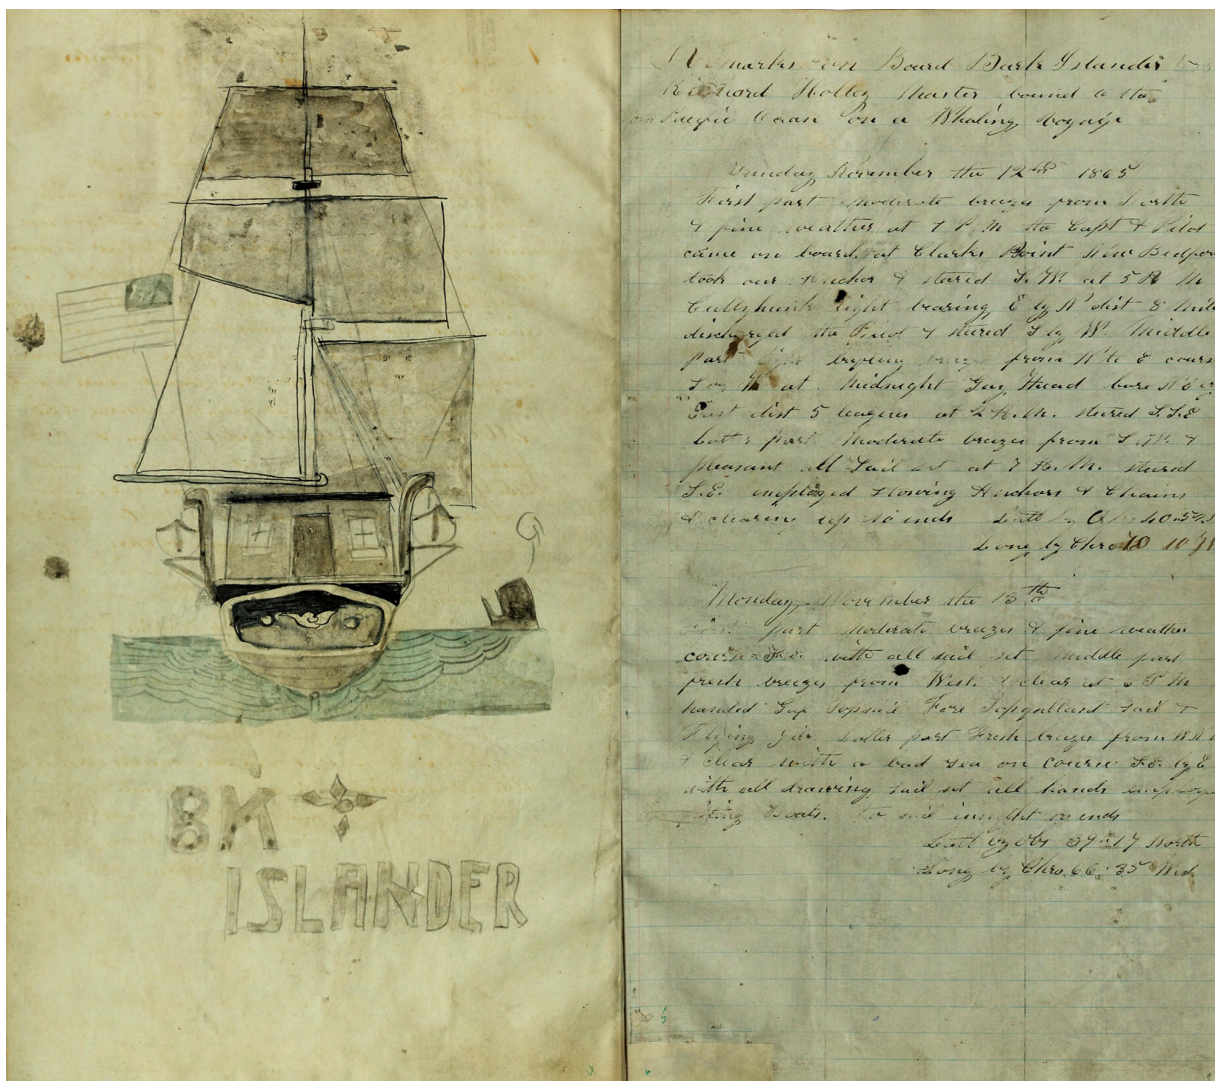 BK
ISLANDER
Remarks on Board Bark Islander
Richard Holley Master bound to the
Pacific Ocean on a Whaling voyage
Sunday November the 12th 1865
First part moderate breezes from North
& fine weather at 1 P M the Capt & Pilot
came on board at Clarks Point New Bedfor
took our Anchor & steared S. W. at 5 P M
Cuttyhunk light bearing E by N dist 8 mile
discharged the Pilot & steared S by W. Middle
part light breezes from N to E cours
S by W at Midnight Gay Head bore N E
East dist 5 leagues at 2 A. M. steared S.S.E
latter part moderate breezes from S.W. &
pleasant all Sail set at 7 A. M. steared
S.E. employed stowing Anchors & Chains
& clearing up so ends Latt by Obs 40
Long by Chro 70
Monday November the 13th
First part moderate breezes & fine weather
course S.E. with all sail set middle part
fresh breezes from West & clear at 6 P M
handed Gaf Topsail Fore Topgallant sail &
Flying Jib. Latter part Fresh breezes from W N
& clear with a bad sea on course S.E. by E
with all drawing sail set all hands employ
boats. no sail insight so ends
Latt by Obs 39:17 North
Long by Chro. 66:35 West